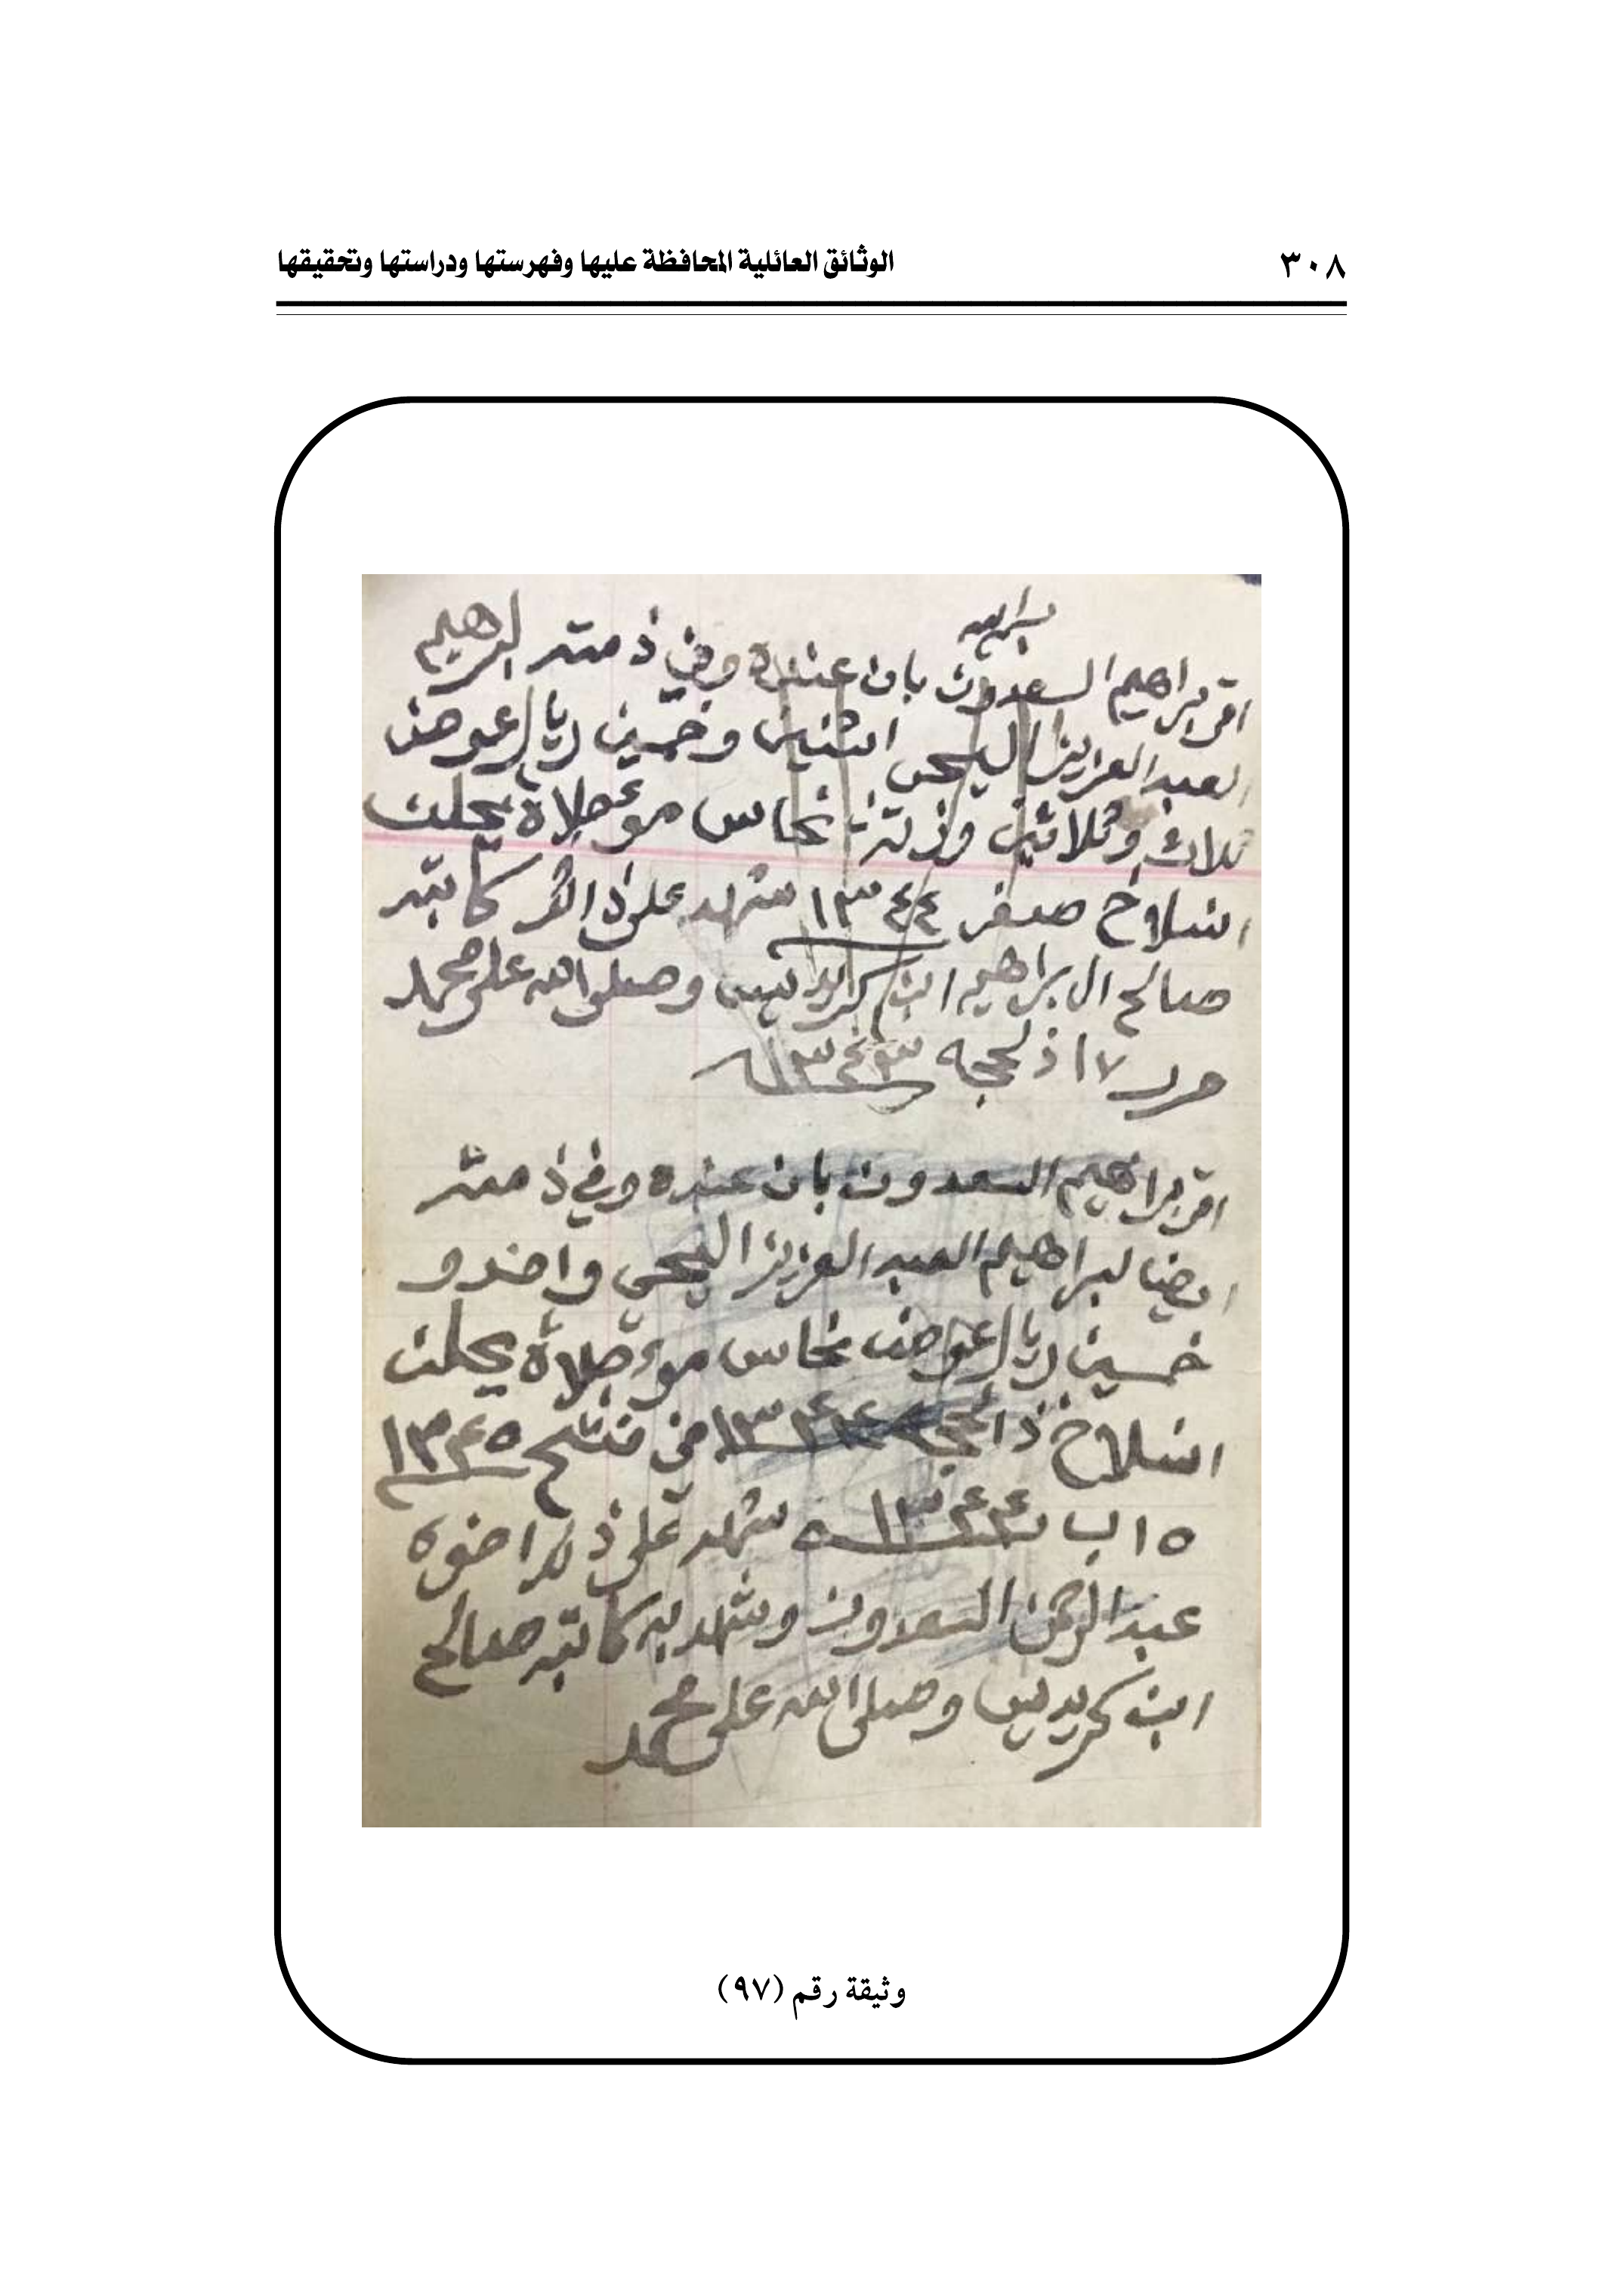 ٣٠٨
الوثائق العائلية المحافظة عليها وفهرستها ودراستها وتحقيقها
بسم الله
اقر براهيم السعدون بان عنده وفي ذمته لبرهيم
العبد العزيز اليحيى اثنين وخمسين ريال عوض
ثلاث وثلاثين وزنة نحاس موءجلاة يحلن
انسلاخ صفر ١٣٤٤ شهد على ذالك كاتبه
صالح البراهيم ابن كريديس وصلى الله على محمد
حرر ١٧ اذلحجه ١٣٤٣
اقر براهيم السعدون بان عنده وفي ذمته
ايضا لبراهيم العبد العزيز اليحيى واحد و
خمسين ريال عوض نحاس موءجلاة يحلن
انسلاخ ذالحجه ١٣٤٤ من فتتح ١٣٤٥
١٥ ١٣٤٤ شهد على ذلك اخوه
عبد الرحمن السعدون وشهد به كاتبه صالح
ابن كريديس وصلى الله على محمد
وثيقة رقم (٩٧)